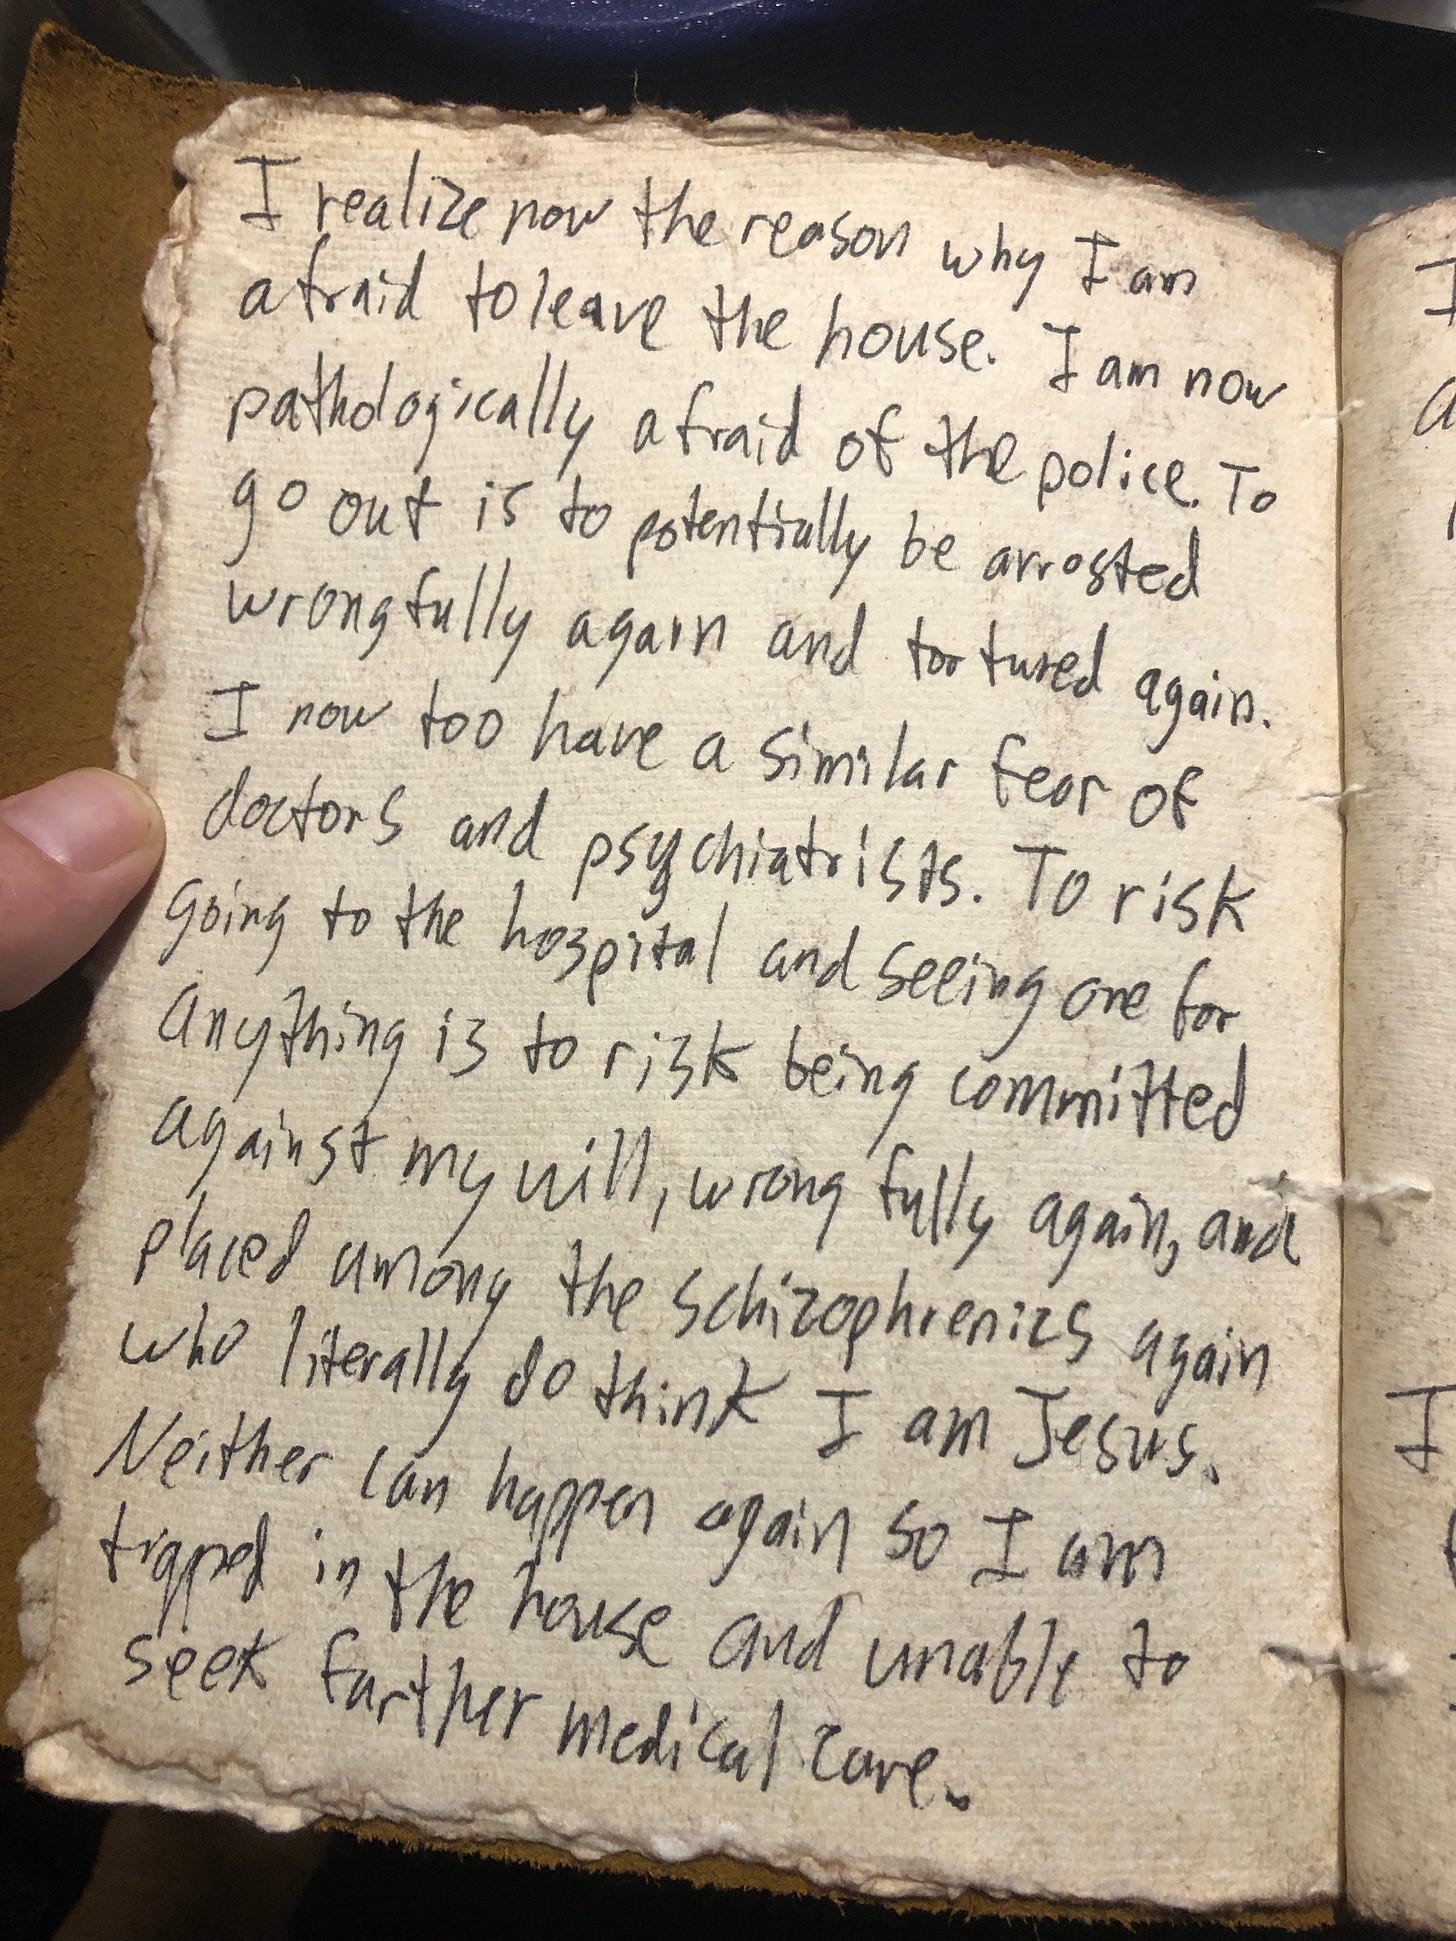 I realize now the reason why I am
afraid to leave the house. I am now
pathologically afraid of the police. To
go out is to potentially be arrested
wrongfully again and tortured again.
I now too have a similar fear of
doctors and psychiatrists. To risk
going to the hospital and seeing one for
anything is to risk being committed
against my will, wrongfully again, and
placed among the schizophrenics again
who literally do think I am Jesus.
Neither can happen again so I am
trapped in the house and unable to
seek farther medical care.